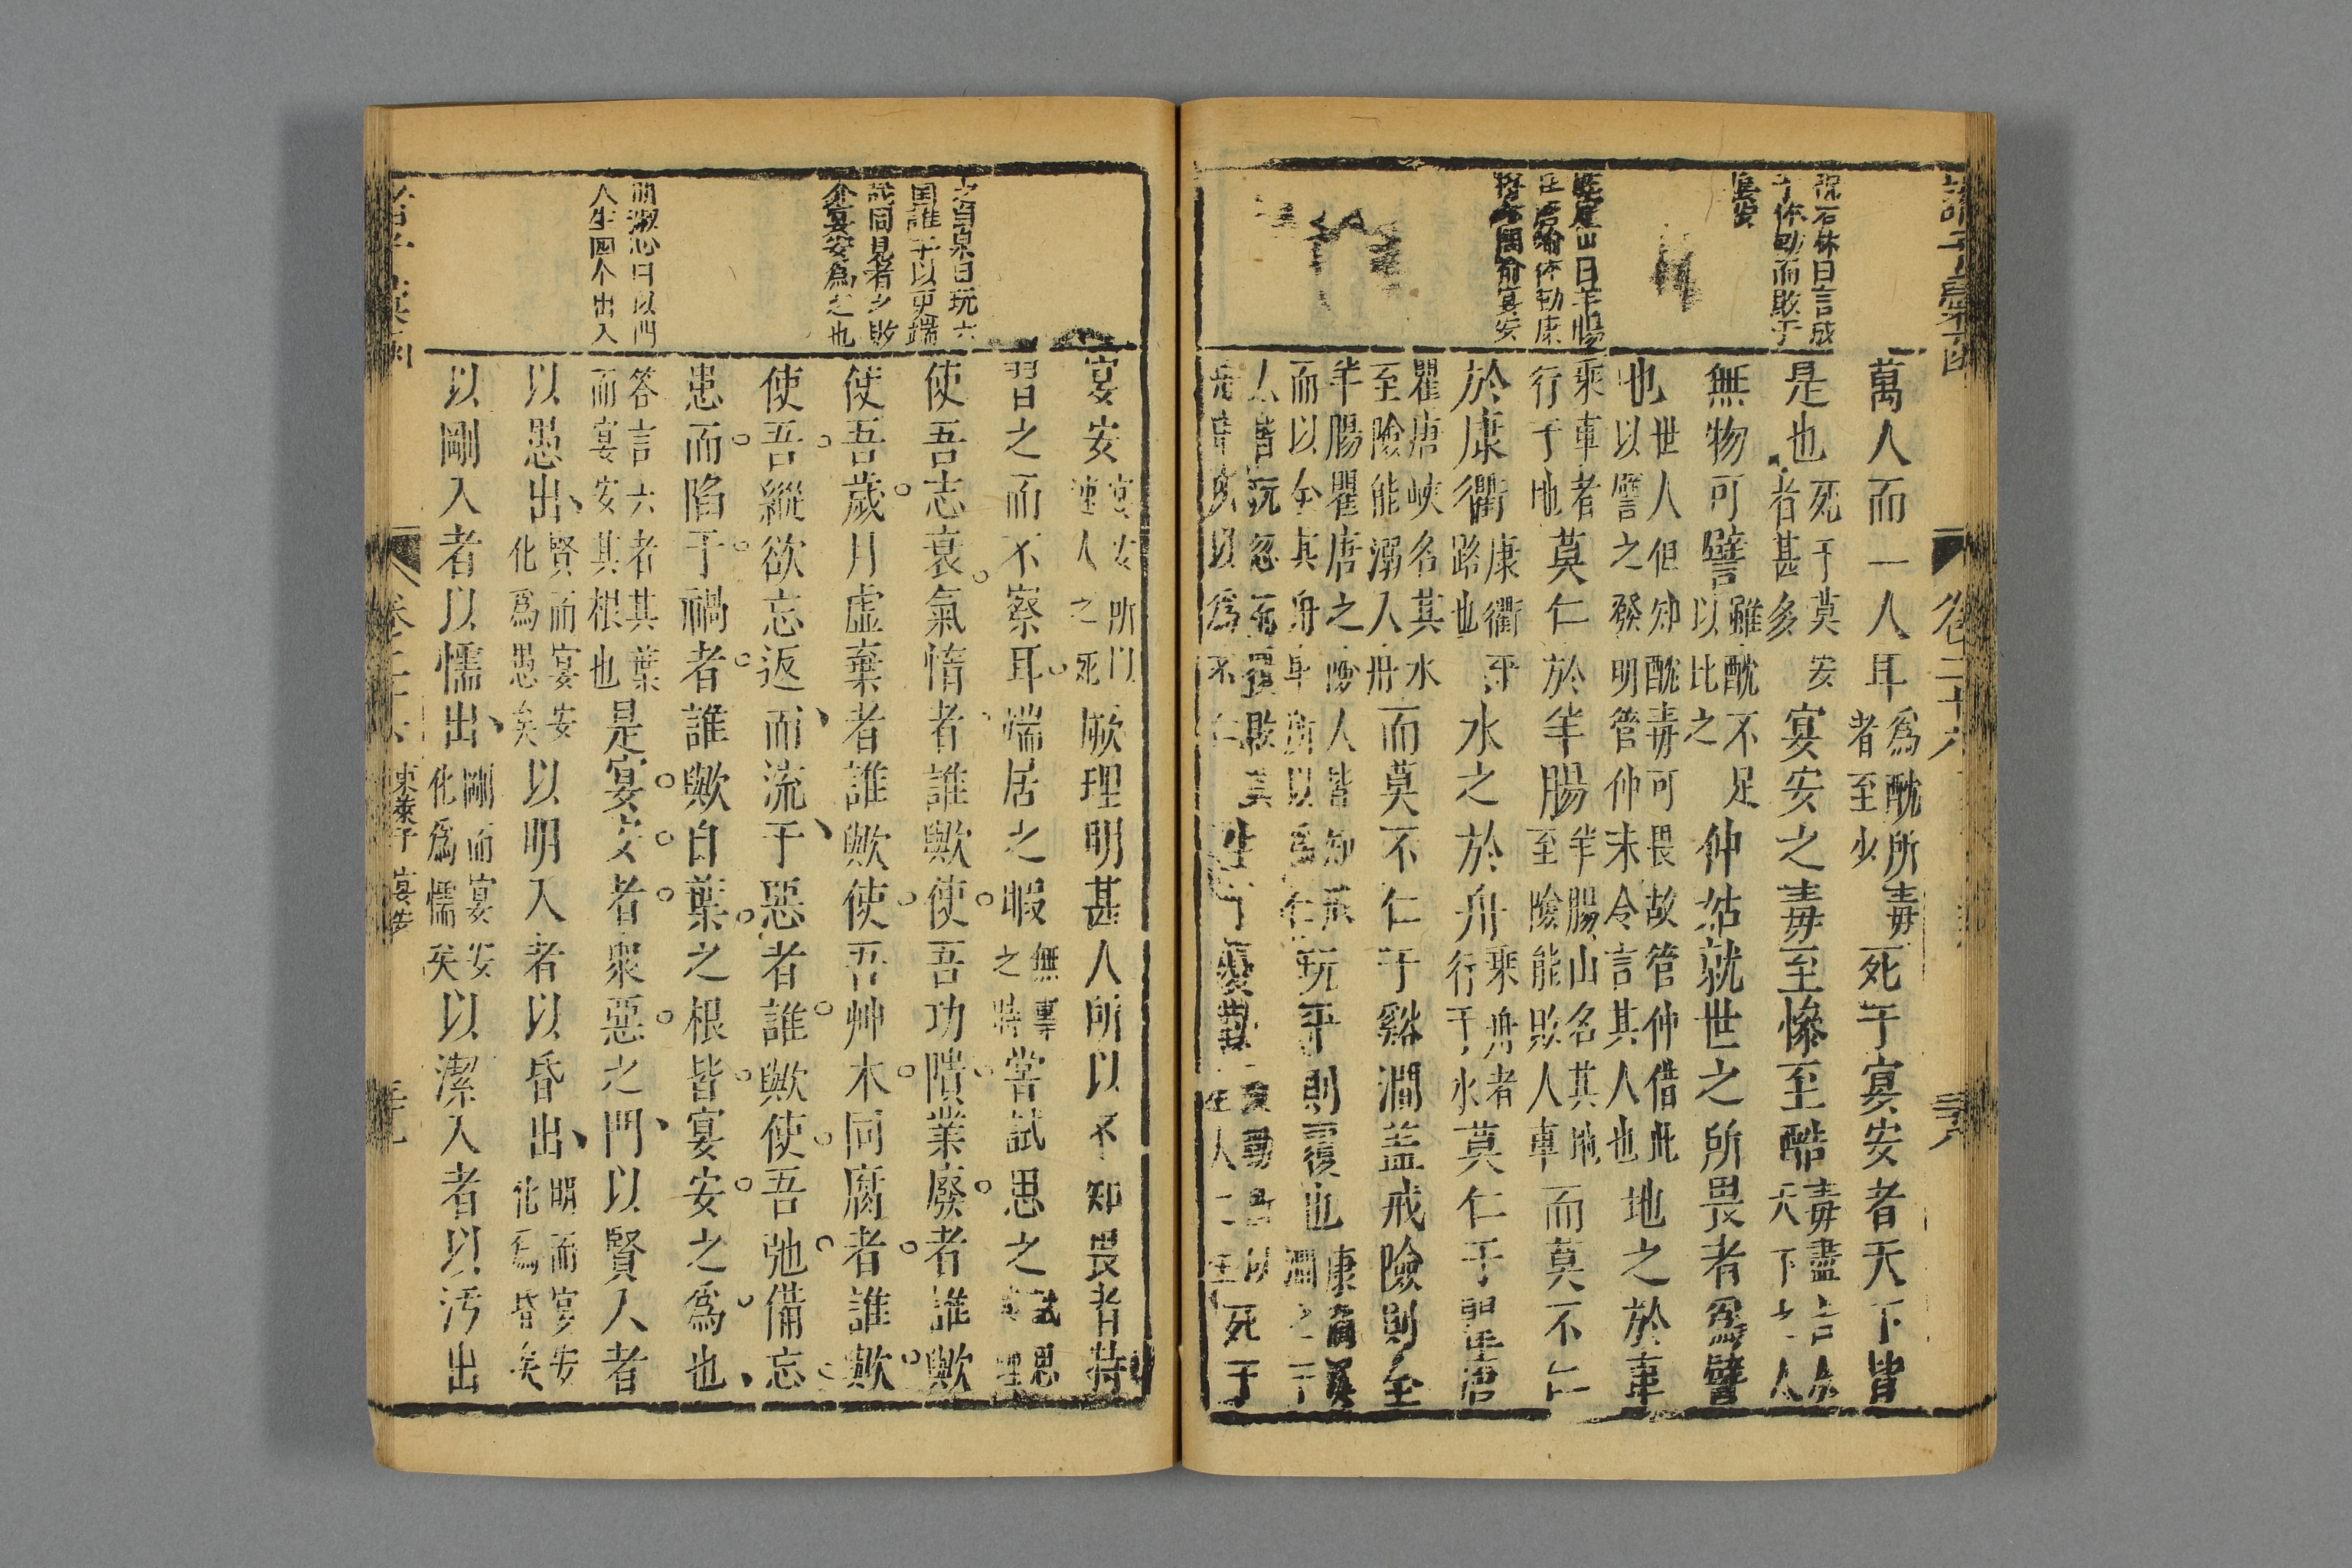 祝石林曰言成
于休動而敗于
宴安
萬人而一人耳為酖所毒者至少死于宴安者天下皆
是也死于莫安者甚多宴安之毒至慘至酷毒盡古今天下之人
無物可譬雖酖不足以比之仲姑就世之所畏者爲譬
也世人但知酖毒可畏故管仲借此以譬之發明管仲未令言其人也地之於車
乘車者行于地莫仁於羊腸羊腸山名其地至險能敗人車而莫不仁
於康衢康衢平路也水之於舟乘舟者行于水莫仁于瞿唐
瞿唐峽名其水至險能溺人舟而莫不仁于谿澗盖戒險則全
羊腸瞿唐之險人皆知戒而以全其舟車所以爲仁玩平則覆也
人皆玩忽而覆敗其
生于憂勤 死于
卷二十六
之百泉曰玩六
誰字以更端
誠同見者之敗
企宴安為之也
胡漸水曰以門
人生四个出入
宴安宴安所以連人之死厥理明甚人所以不知畏者特
習之而不察耳端居之暇無事之時嘗試思之試思
使吾志衰氣惰者誰歟使吾功隳業廢者誰歟
使吾歲月虛棄者誰歟使吾艸木同腐者誰歟
使吾縱欲忘返而流于惡者誰歟使吾弛備忘
患而陷于禍者誰歟自葉之根皆宴安之為也
答言六者其葉而宴安其根也是宴安者衆惡之門以賢入者
以愚出賢而宴安化爲愚矣以明入者以昏出明而宴安化爲昏矣
以剛入者以懦出剛而宴安化爲懦矣以潔入者以汚出
東萊子 宴安